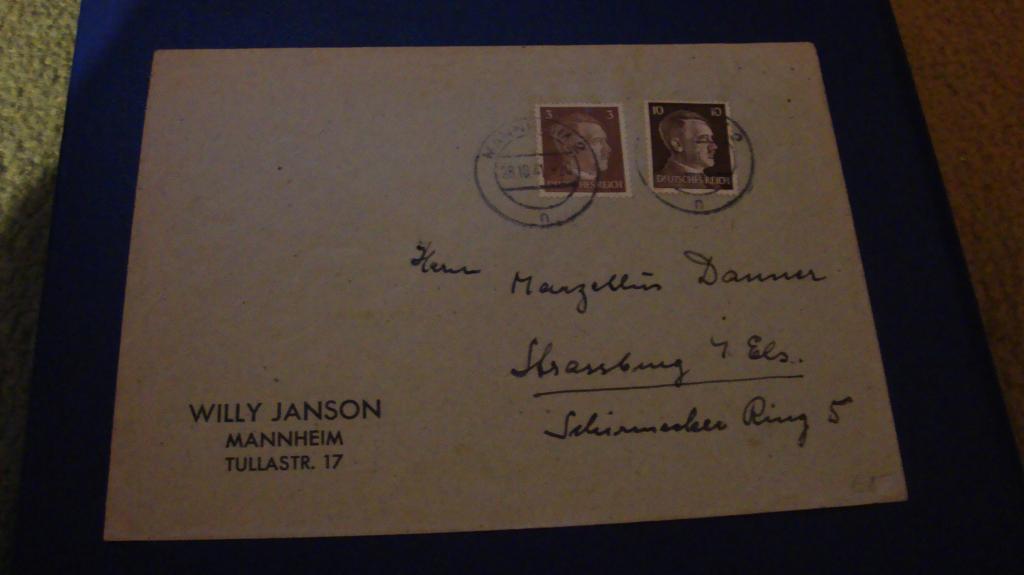 3 3
10 10
DEUTSCHES REICH
MANNHEIM 2
28.10.41
n
n
Herrn
Marzellus Danner
Strassburg i/ Els.
Schirmecker Ring 5
WILLY JANSON
MANNHEIM
TULLASTR. 17